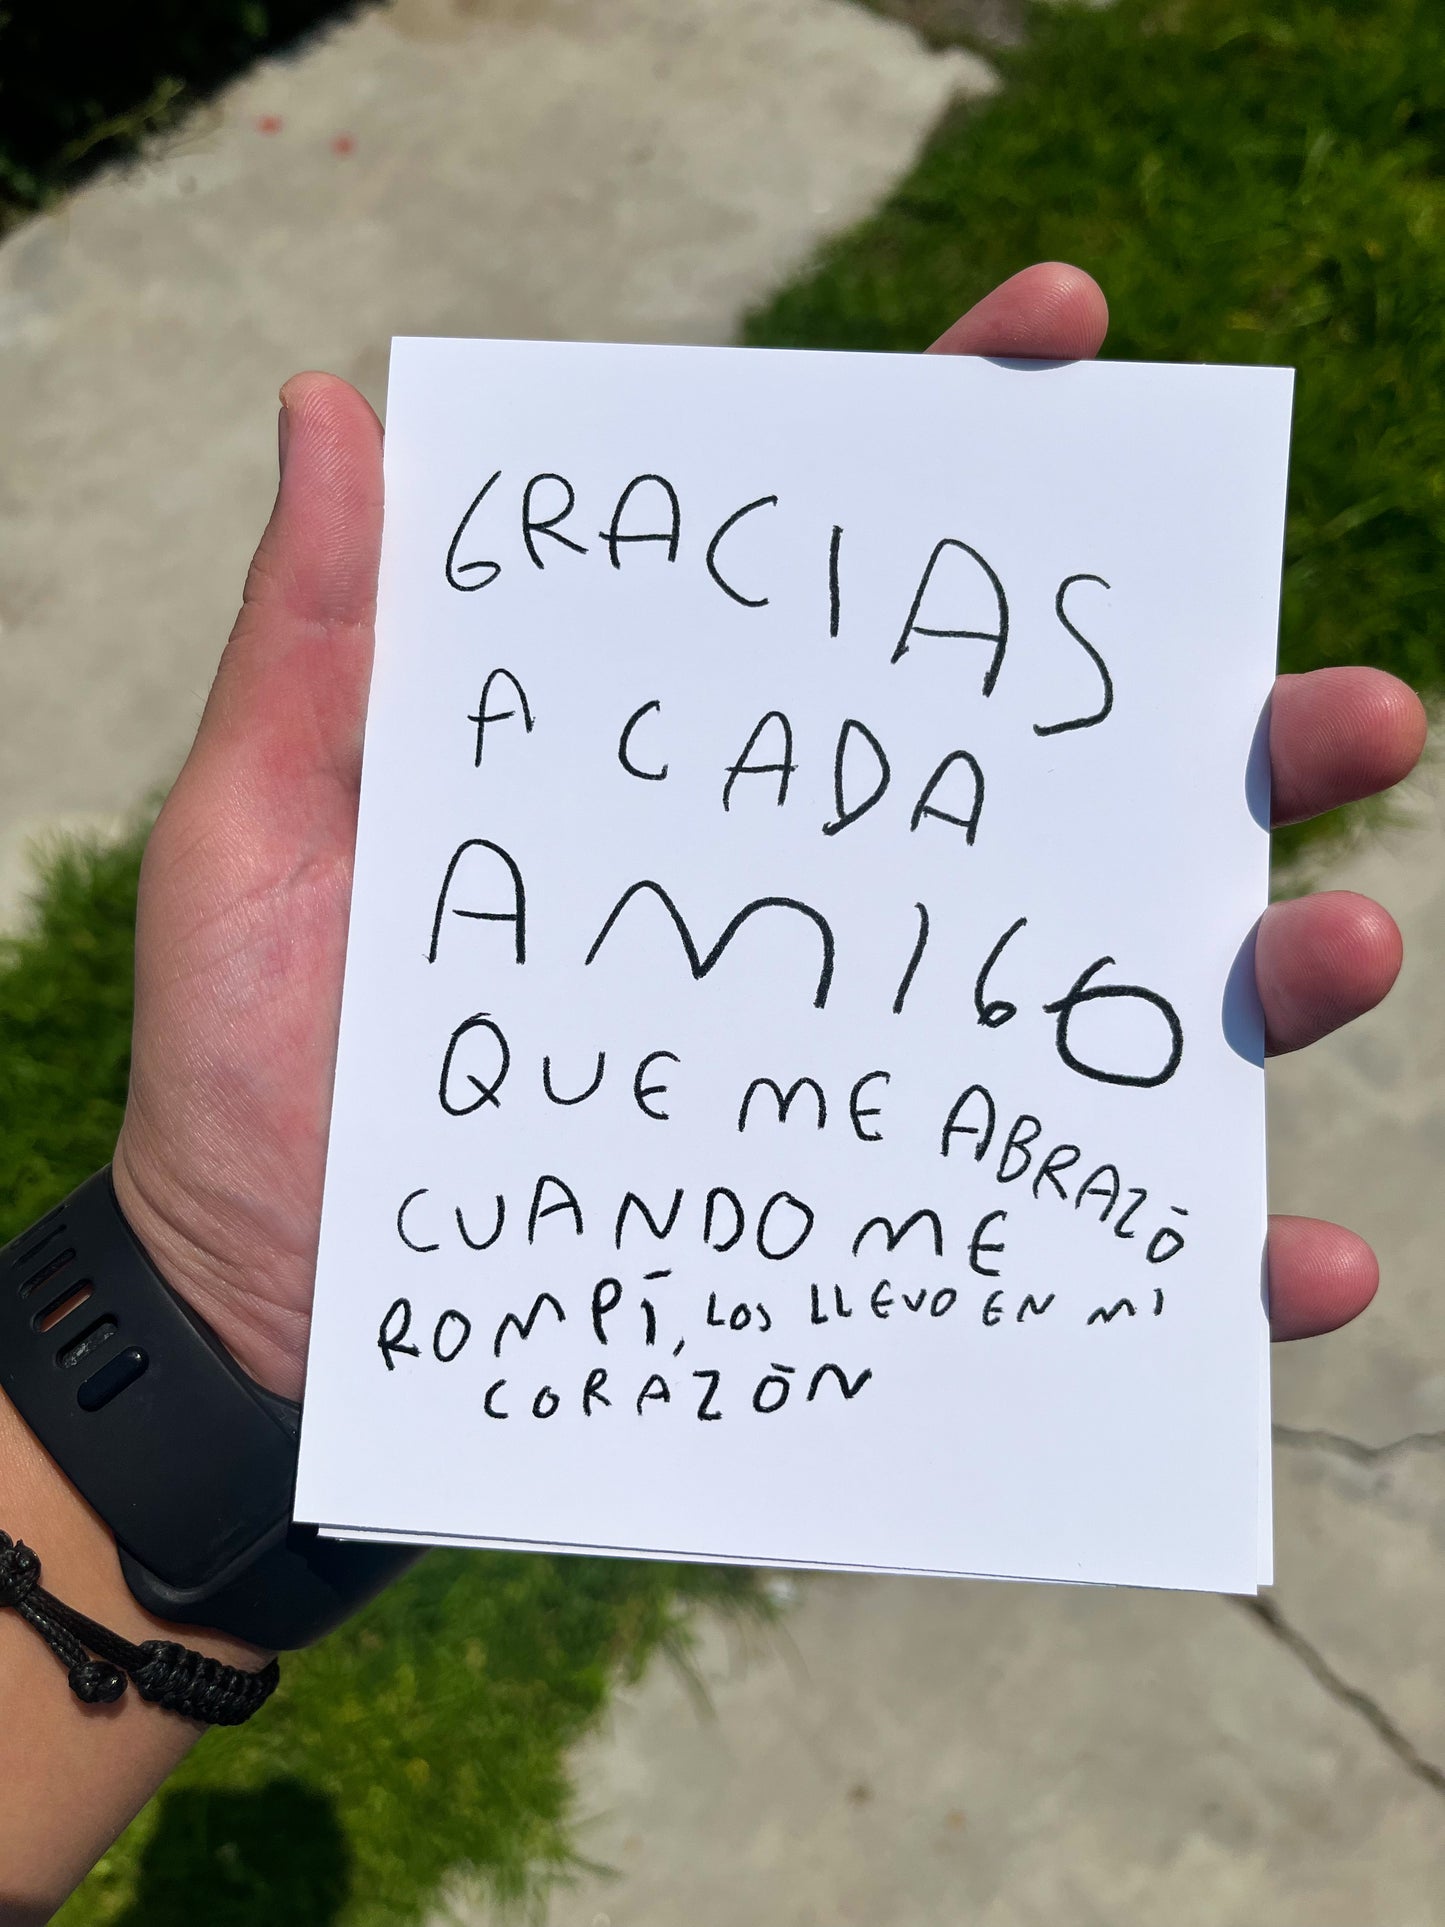 GRACIAS
A CADA
AMIGO
QUE ME ABRAZÓ
CUANDO ME
ROMPÍ, LOS LLEVO EN MI
CORAZÓN